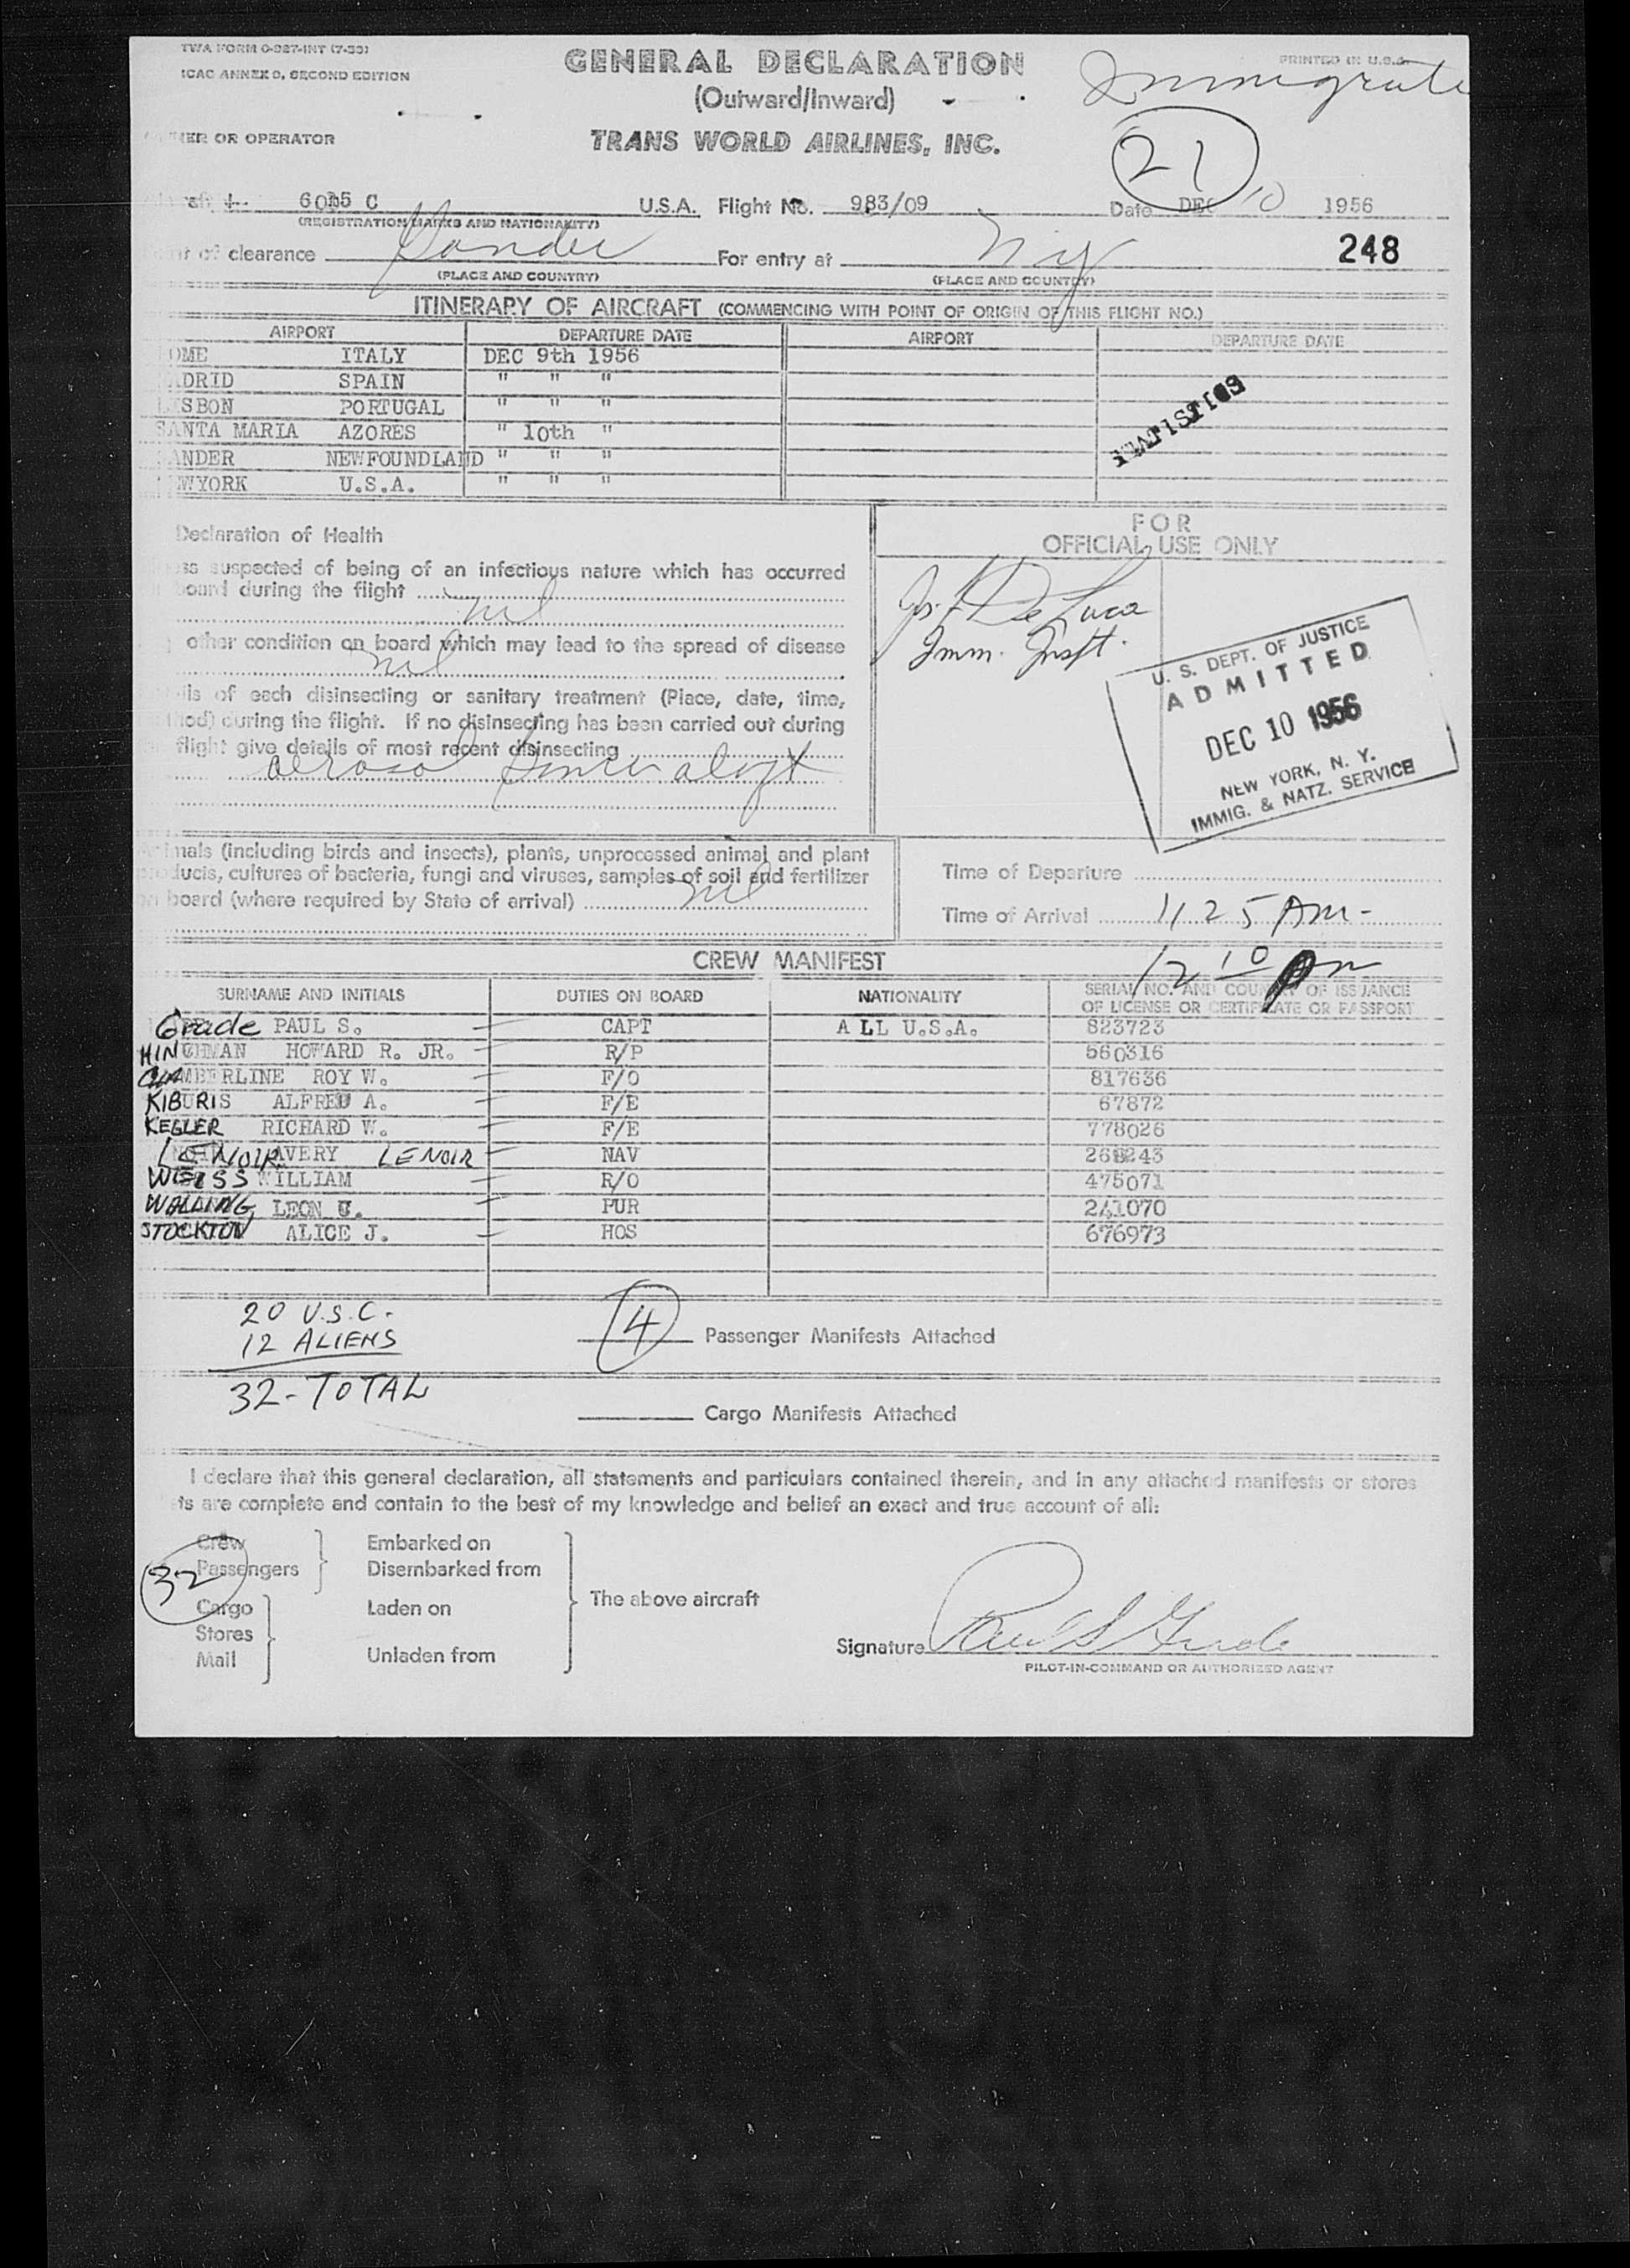 TWA FORM O-927-INT (7-53)
ICAO ANNEX 9, SECOND EDITION
GENERAL DECLARATION
(Outward/Inward)
PRINTED IN U.S.A.
OR OPERATOR
TRANS WORLD AIRLINES, INC.
21
C U.S.A. Flight No. 983/09 Date DEC 10 1956
(REGISTRATION MARKS AND NATIONALITY)
of clearance Gander For entry at N.Y. 248
(PLACE AND COUNTRY) (PLACE AND COUNTRY)
ITINERARY OF AIRCRAFT (COMMENCING WITH POINT OF ORIGIN OF THIS FLIGHT NO.)
AIRPORT DEPARTURE DATE AIRPORT DEPARTURE DATE
OME ITALY DEC 9th 1956
ADRID SPAIN " " "
ISBON PORTUGAL " " "
SANTA MARIA AZORES " 10th "
ANDER NEWFOUNDLAND " " "
EWYORK U.S.A. " " "
STATISTICS
Declaration of Health
suspected of being of an infectious nature which has occurred
board during the flight nil
other condition on board which may lead to the spread of disease
nil
of each disinsecting or sanitary treatment (Place, date, time,
during the flight. If no disinsecting has been carried out during
flight give details of most recent disinsecting
aerosol
FOR
OFFICIAL USE ONLY
De Luca
Imm. Inspt.
U. S. DEPT. OF JUSTICE
ADMITTED
DEC 10 1956
NEW YORK, N. Y.
IMMIG. & NATZ. SERVICE
Animals (including birds and insects), plants, unprocessed animal and plant
products, cultures of bacteria, fungi and viruses, samples of soil and fertilizer
on board (where required by State of arrival) nil
Time of Departure
Time of Arrival 11 25 AM-
12 10 pm
CREW MANIFEST
SURNAME AND INITIALS DUTIES ON BOARD NATIONALITY SERIAL NO. AND COUNTRY OF ISSUANCE
OF LICENSE OR CERTIFICATE OR PASSPORT
Grade PAUL S. CAPT ALL U.S.A. 823723
HINCHMAN HOWARD R. JR. R/P 560316
CHAMBERLINE ROY W. F/O 817636
KIBURIS ALFRED A. F/E 67872
KEGLER RICHARD W. F/E 778026
LENOIR AVERY LENOIR NAV
WEISS WILLIAM R/O 475071
WALLING LEON U. PUR 241070
STOCKTON ALICE J. HOS 676973
20 U.S.C.
12 ALIENS
32-TOTAL
4 Passenger Manifests Attached
Cargo Manifests Attached
I declare that this general declaration, all statements and particulars contained therein, and in any attached manifests or stores
are complete and contain to the best of my knowledge and belief an exact and true account of all:
Crew
Passengers
32
Cargo
Stores
Mail
Embarked on
Disembarked from
Laden on
Unladen from
The above aircraft
Signature Paul S Grade
PILOT-IN-COMMAND OR AUTHORIZED AGENT